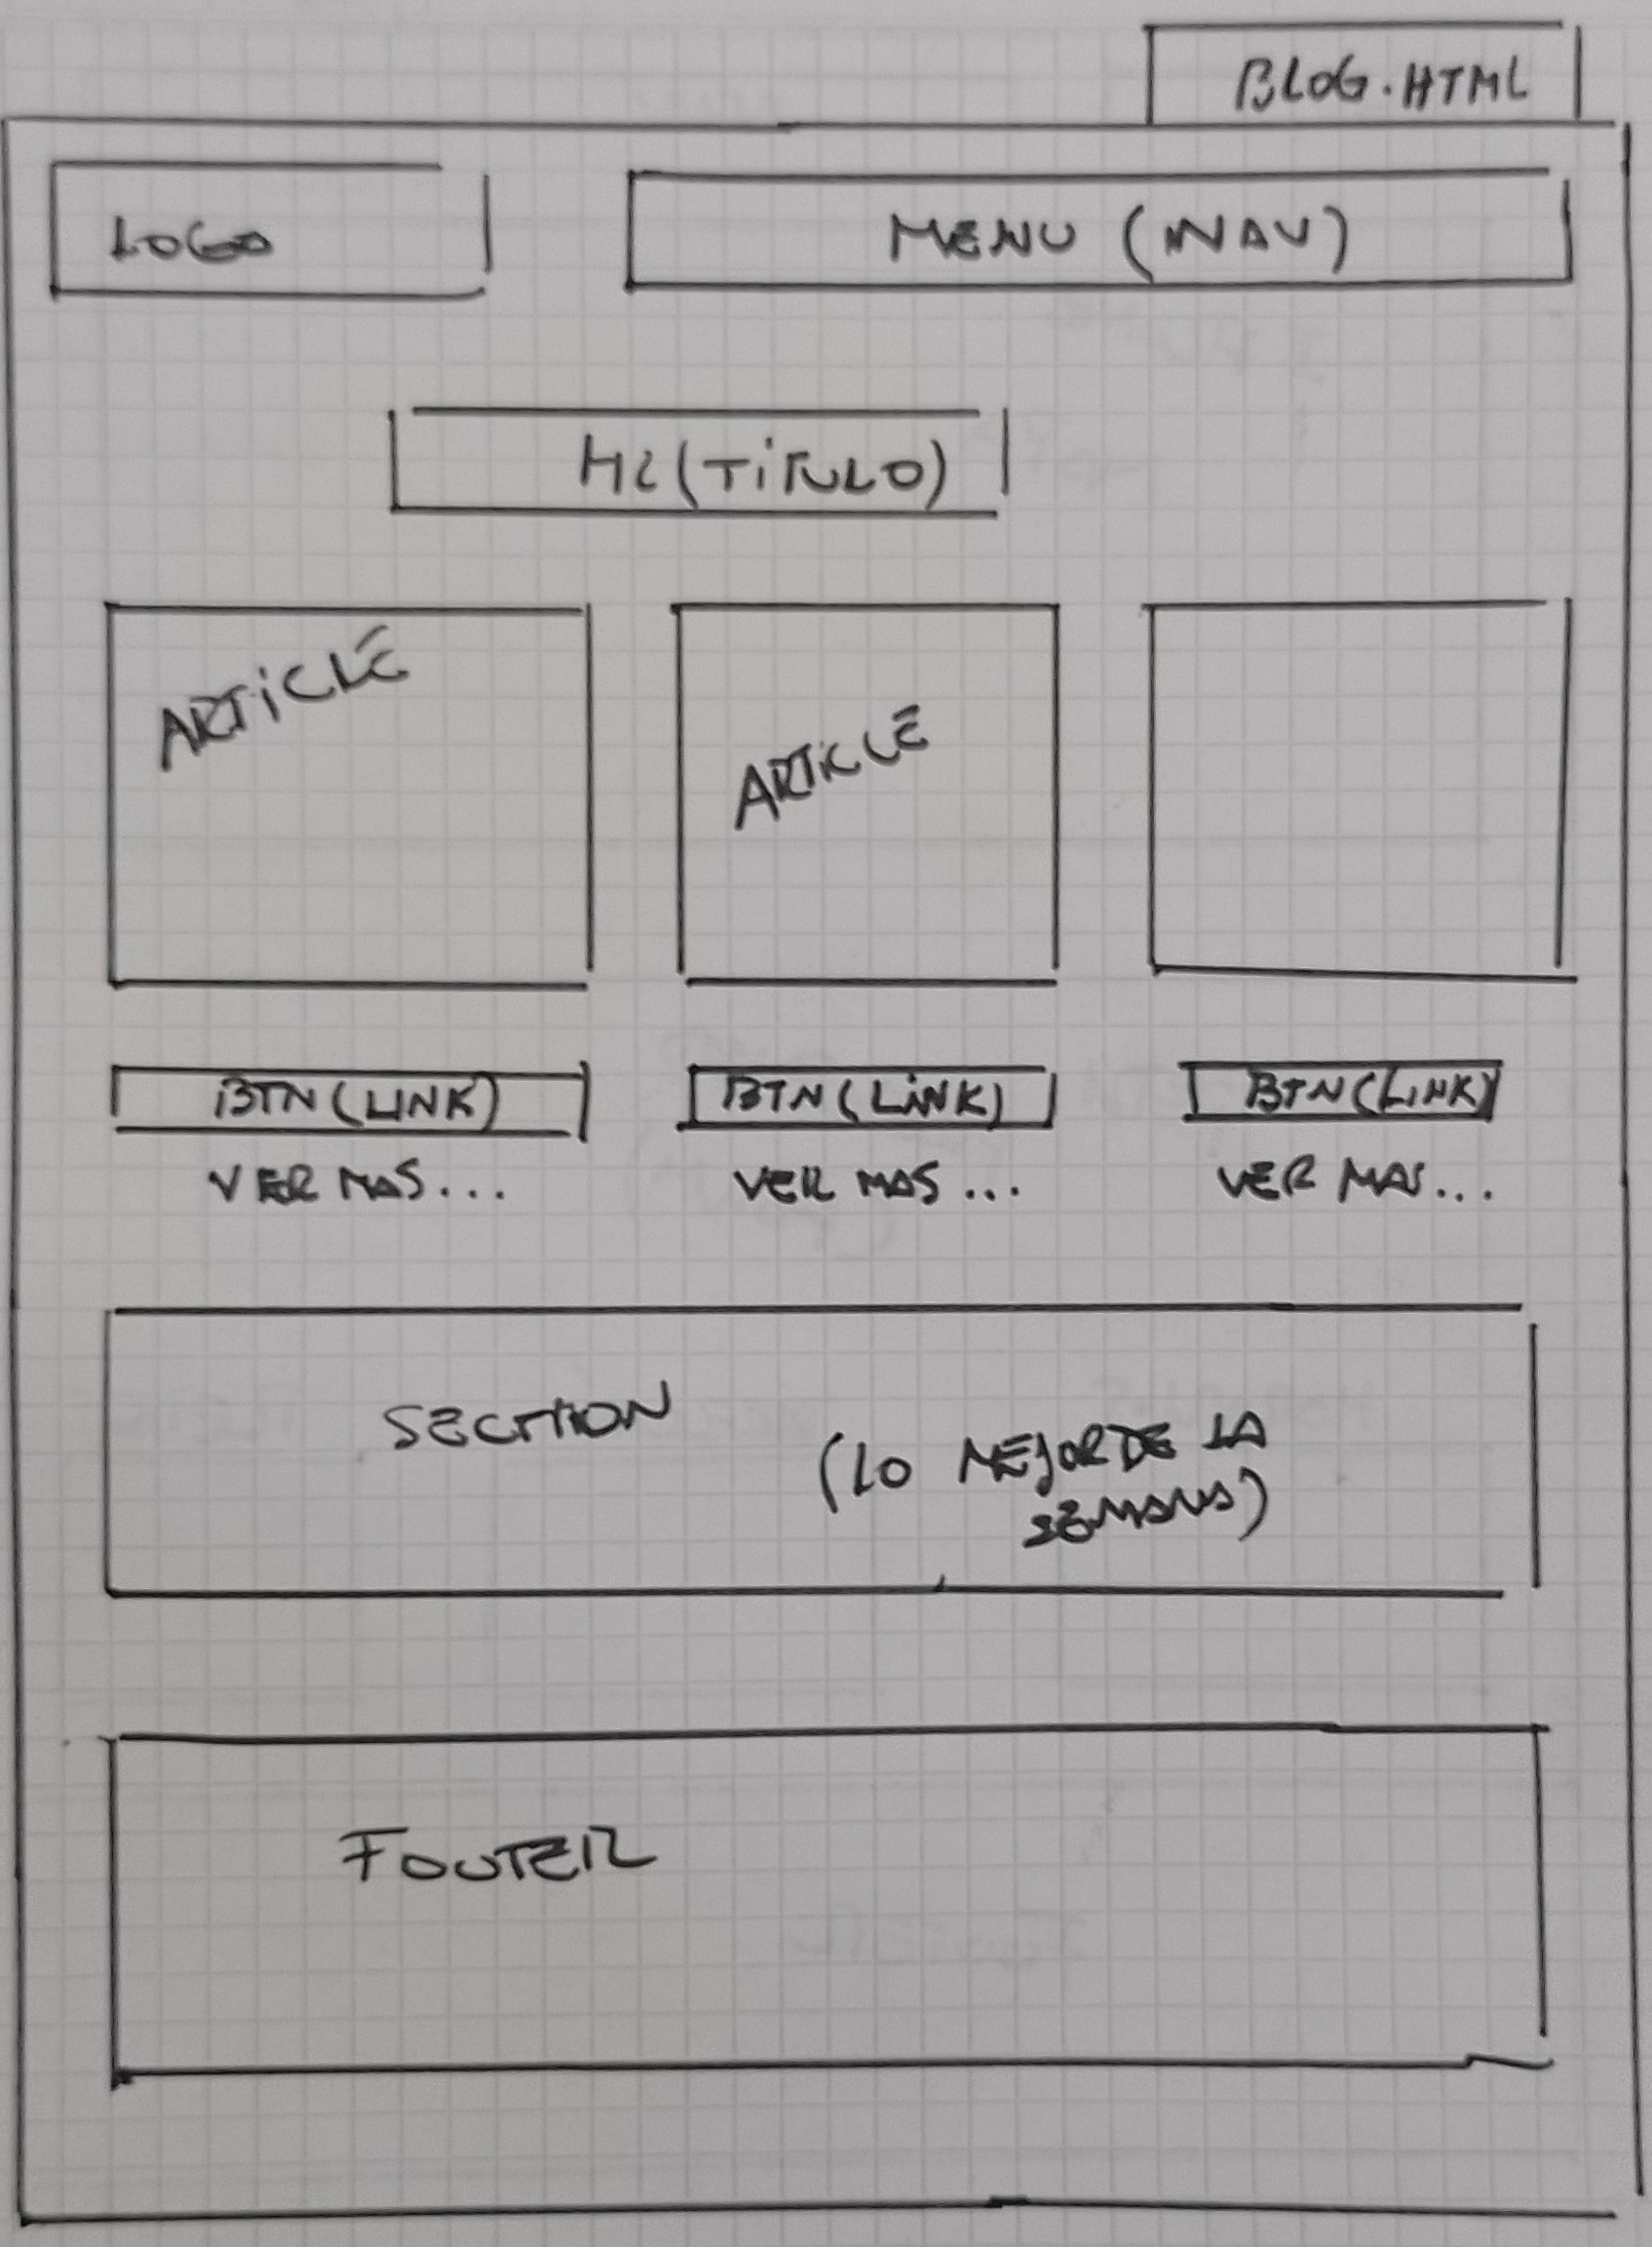 BLOG.HTML
LOGO
MENU (NAV)
H1 (TíTULO)
ARTiCLE
ARTiCLE
BTN (LINK)
BTN (LiNK)
BTN (LiNK)
VER MAS...
VER MAS...
VER MAS...
SECTION
(LO MEJOR DE LA
SEMANA)
FOOTER